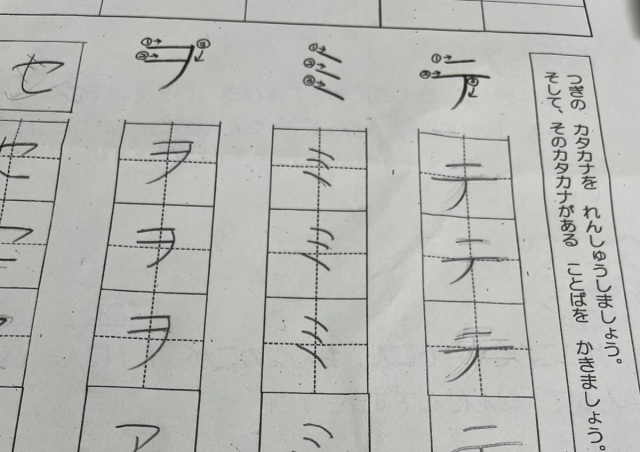 つぎの カタカナを れんしゅうしましょう。
そして、そのカタカナがある ことばを かきましょう。
①→
②→
③
テ
テ
テ
テ
テ
①→
②→
③→
ミ
ミ
ミ
ミ
ミ
①→
②→
③
ヲ
ヲ
ヲ
ヲ
ア
セ
セ